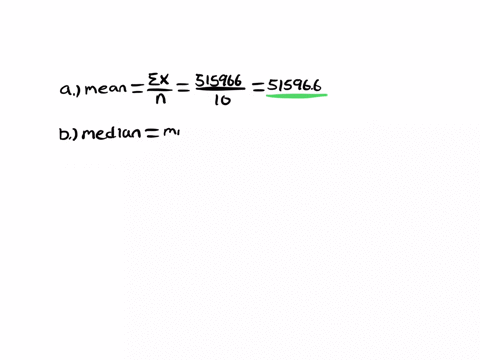 a.) mean = Σx/n = 515966/10 = 51596.6
b.) median = m